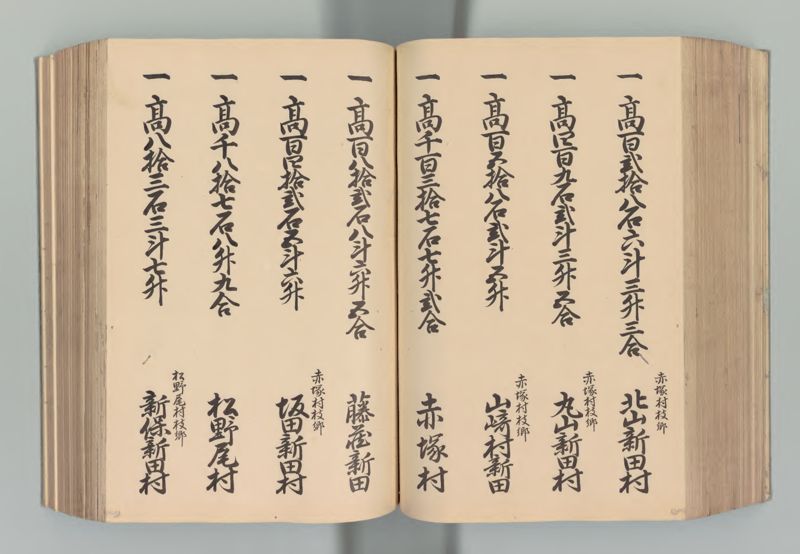 一高百弐拾八石六斗三升三合
赤塚村枝郷
北山新田村
一高四百九石弐斗三升五合
赤塚村枝郷
丸山新田村
一高百五拾八石弐斗五升
赤塚村枝郷
山崎村新田
一高千百三拾七石七升弐合
赤塚村
一高百八拾弐石八斗六升五合
藤蔵新田
一高百四拾弐石五斗六升
赤塚村枝郷
坂田新田村
一高千八拾七石八升九合
松野尾村
一高八拾三石三斗七升
松野尾村枝郷
新保新田村